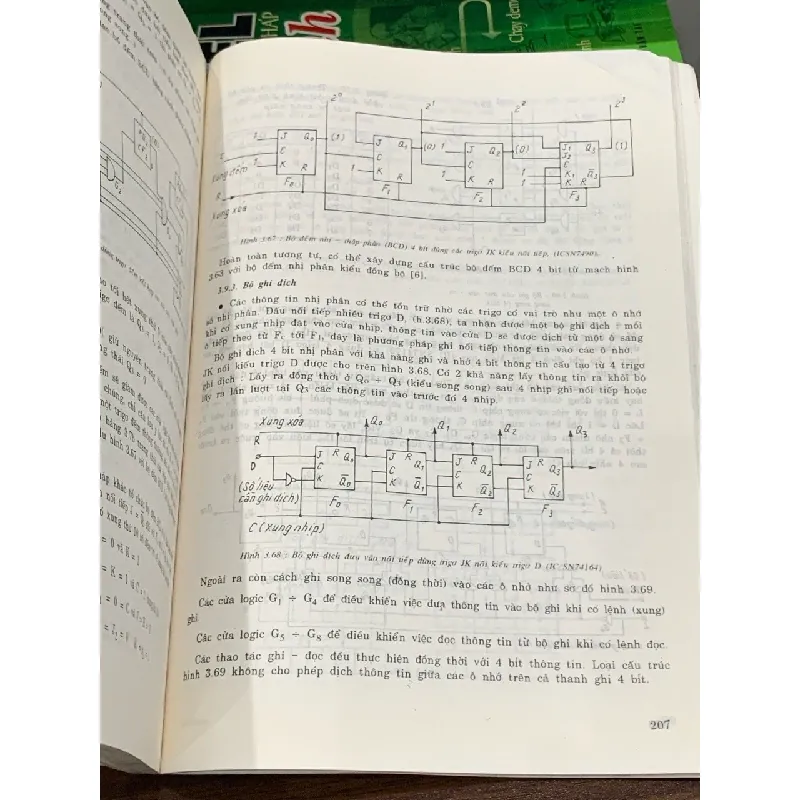 PHÁP
Chạy dem
2⁰
2¹
2²
2³
1 J Q₀ (1) J Q₁ (0) 1 J Q₂ (0) J₁ Q₃ (1)
C C C J₂ C
1 K R 1 K R 1 K R 1 K₁ Q̄₃
1 K R
F₀ F₁ F₂ F₃
Xung đếm
R
Xung xóa
Hình 3.67 : Bộ đếm nhị - thập phân (BCD) 4 bit dùng các trigơ JK kiểu nối tiếp, (ICSN7490).
Hoàn toàn tương tự, có thể xây dựng cấu trúc bộ đếm BCD 4 bit từ mạch hình
3.63 với bộ đếm nhị phân kiểu đồng bộ [6].
3.9.3. Bộ ghi dịch
• Các thông tin nhị phân có thể tồn trữ nhờ các trigơ có vai trò như một ô nhớ
số nhị phân. Đấu nối tiếp nhiều trigơ D, (h.3.68), ta nhận được một bộ ghi dịch : mỗi
khi có xung nhịp đặt vào cửa nhịp, thông tin vào cửa D sẽ được dịch từ một ô sang
ô tiếp theo từ F₀ tới F₁, đây là phương pháp ghi nối tiếp thông tin vào các ô nhớ.
Bộ ghi dịch 4 bit nhị phân với khả năng ghi và nhớ 4 bit thông tin cấu tạo từ 4 trigơ
JK nối kiểu trigơ D được cho trên hình 3.68. Có 2 khả năng lấy thông tin ra khỏi bộ
ghi dịch : Lấy ra đồng thời ở Q₀ ÷ Q₃ (kiểu song song) sau 4 nhịp ghi nối tiếp hoặc
lấy ra lần lượt tại Q₃ các thông tin vào trước đó 4 nhịp.
Xung xóa Q₀ Q₁ Q₂ Q₃
R
D
J R Q₀ J R Q₁ J R Q₂ J R Q₃
C C C C
K Q̄₀ K Q̄₁ K Q̄₂ K Q̄₃
(Số liệu
cần ghi dịch)
F₀ F₁ F₂ F₃
C (Xung nhịp)
Hình 3.68 : Bộ ghi dịch đưa vào nối tiếp dùng trigơ JK nối kiểu trigơ D (IC SN74164)
Ngoài ra còn cách ghi song song (đồng thời) vào các ô nhớ như sơ đồ hình 3.69.
Các cửa logic G₁ ÷ G₄ để điều khiển việc đưa thông tin vào bộ ghi khi có lệnh (xung)
ghi
Các cửa logic G₅ ÷ G₈ để điều khiển việc đọc thông tin từ bộ ghi khi có lệnh đọc
Các thao tác ghi - đọc đều thực hiện đồng thời với 4 bit thông tin. Loại cấu trúc
hình 3.69 không cho phép dịch thông tin giữa các ô nhớ trên cả thanh ghi 4 bit.
207